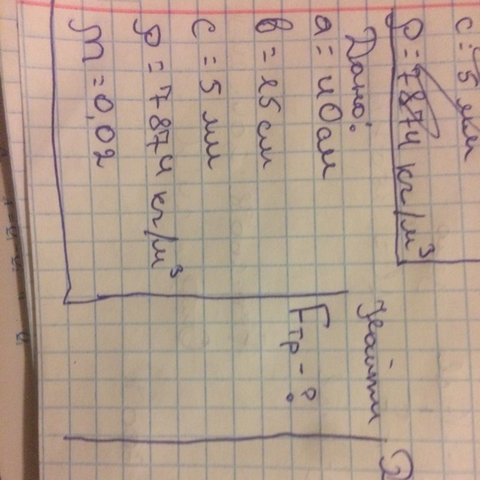 c = 5 мм
ρ = 7874 кг/м³
Дано:
a = 40 см
в = 15 см
c = 5 мм
ρ = 7874 кг/м³
μ = 0,02
Найти
Fтр - ?